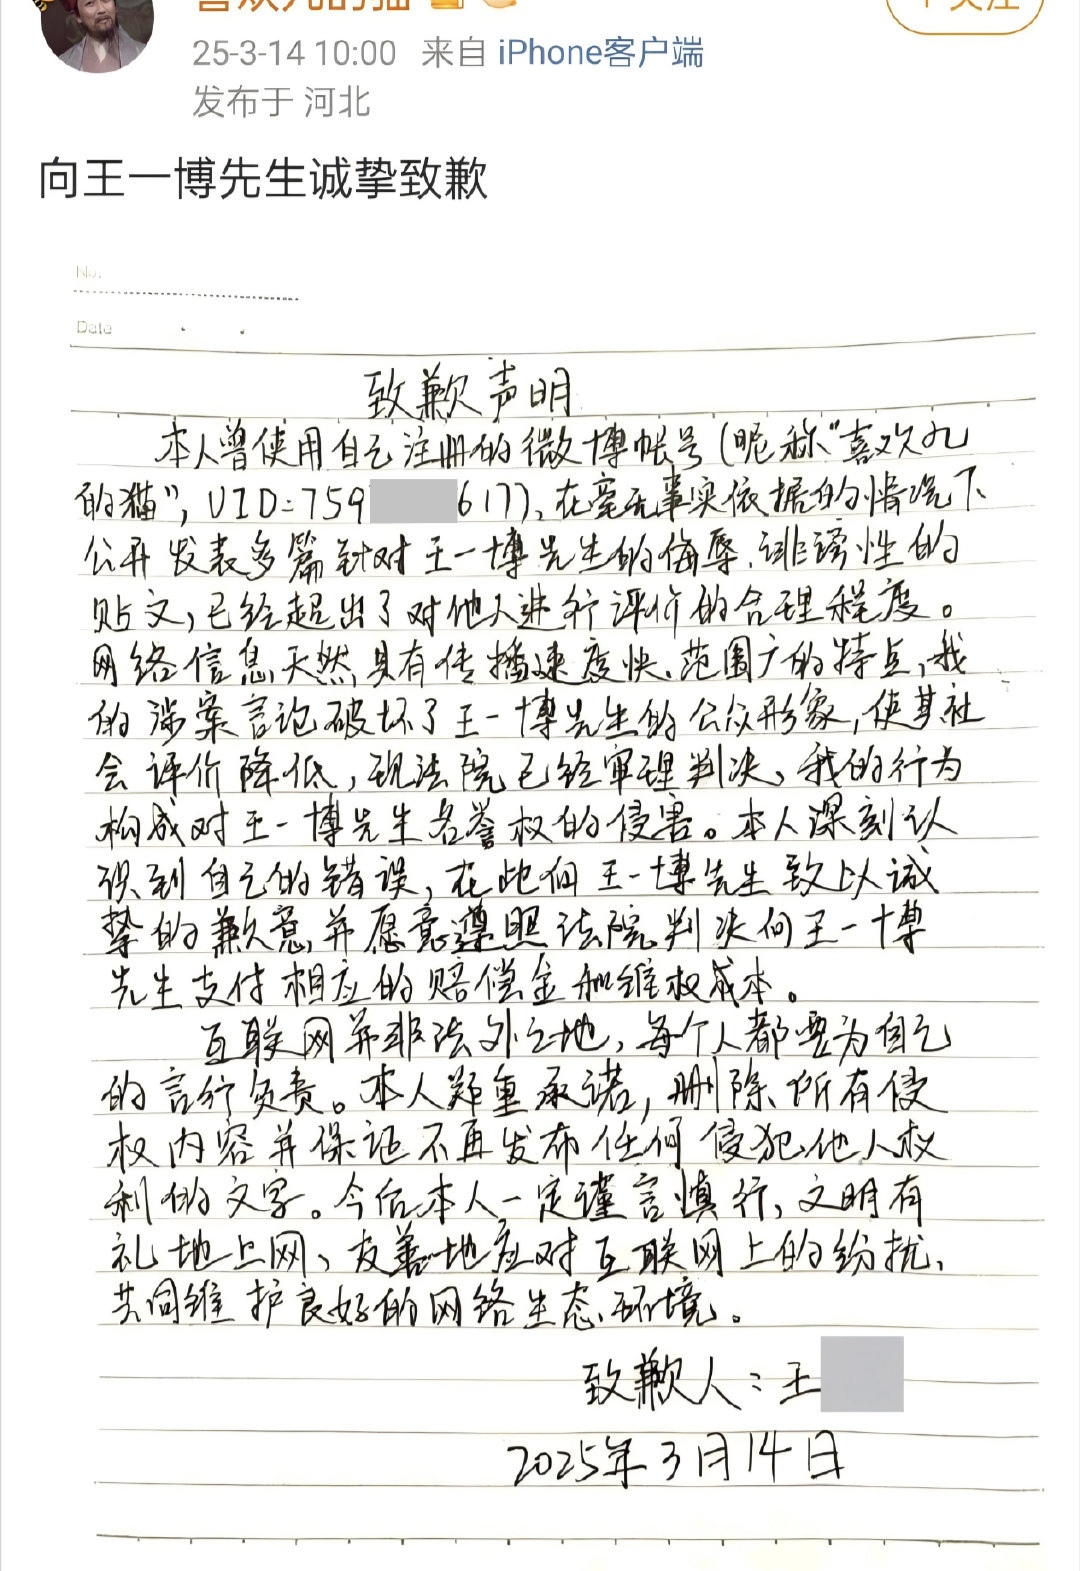 喜欢九的猫
25-3-14 10:00 来自 iPhone客户端
发布于 河北
+关注
向王一博先生诚挚致歉
No.
Date
致歉声明
本人曾使用自己注册的微博帐号(昵称“喜欢九
的猫”,UID:759 617),在毫无事实依据的情况下
公开发表多篇针对王一博先生的侮辱、诽谤性的
贴文,已经超出了对他人进行评价的合理程度。
网络信息天然具有传播速度快、范围广的特点,我
的涉案言论破坏了王一博先生的公众形象,使其社
会评价降低,现法院已经审理判决,我的行为
构成对王一博先生名誉权的侵害。本人深刻认
识到自己的错误,在此向王一博先生致以诚
挚的歉意,并愿意遵照法院判决向王一博
先生支付相应的赔偿金和维权成本。
互联网并非法外之地,每个人都要为自己
的言行负责。本人郑重承诺,删除所有侵
权内容并保证不再发布任何侵犯他人权
利的文字。今后本人一定谨言慎行,文明有
礼地上网,友善地应对互联网上的纷扰,
共同维护良好的网络生态环境。
致歉人:王
2025年3月14日